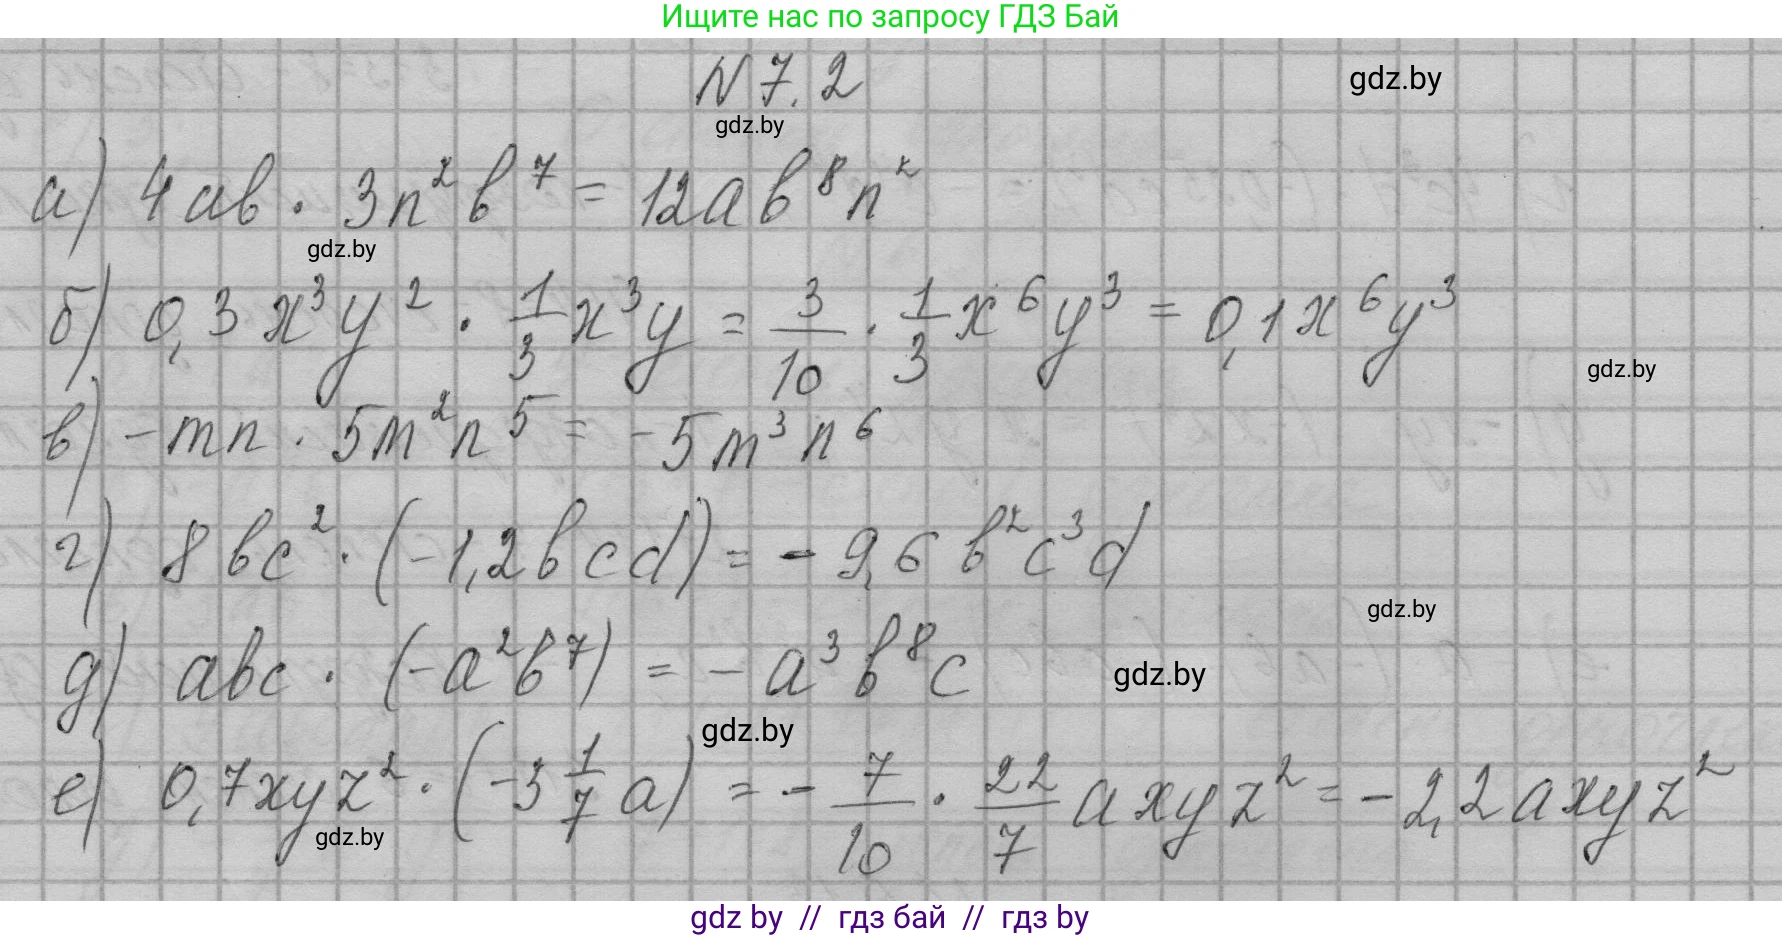 Ищите нас по запросу ГДЗ Бай
N 7.2
gdz.by
gdz.by
а) 4ab · 3n²b⁷ = 12ab⁸n²
gdz.by
б) 0,3x³y² · 1/3 x³y = 3/10 · 1/3 x⁶y³ = 0,1x⁶y³
gdz.by
в) -mn · 5m²n⁵ = -5m³n⁶
г) 8bc² · (-1,2bcd) = -9,6b²c³d
gdz.by
д) abc · (-a²b⁷) = -a³b⁸c
gdz.by
gdz.by
е) 0,7xyz² · (-3 1/7 a) = - 7/10 · 22/7 axyz² = -2,2axyz²
gdz.by
gdz by // гдз бай // гдз by